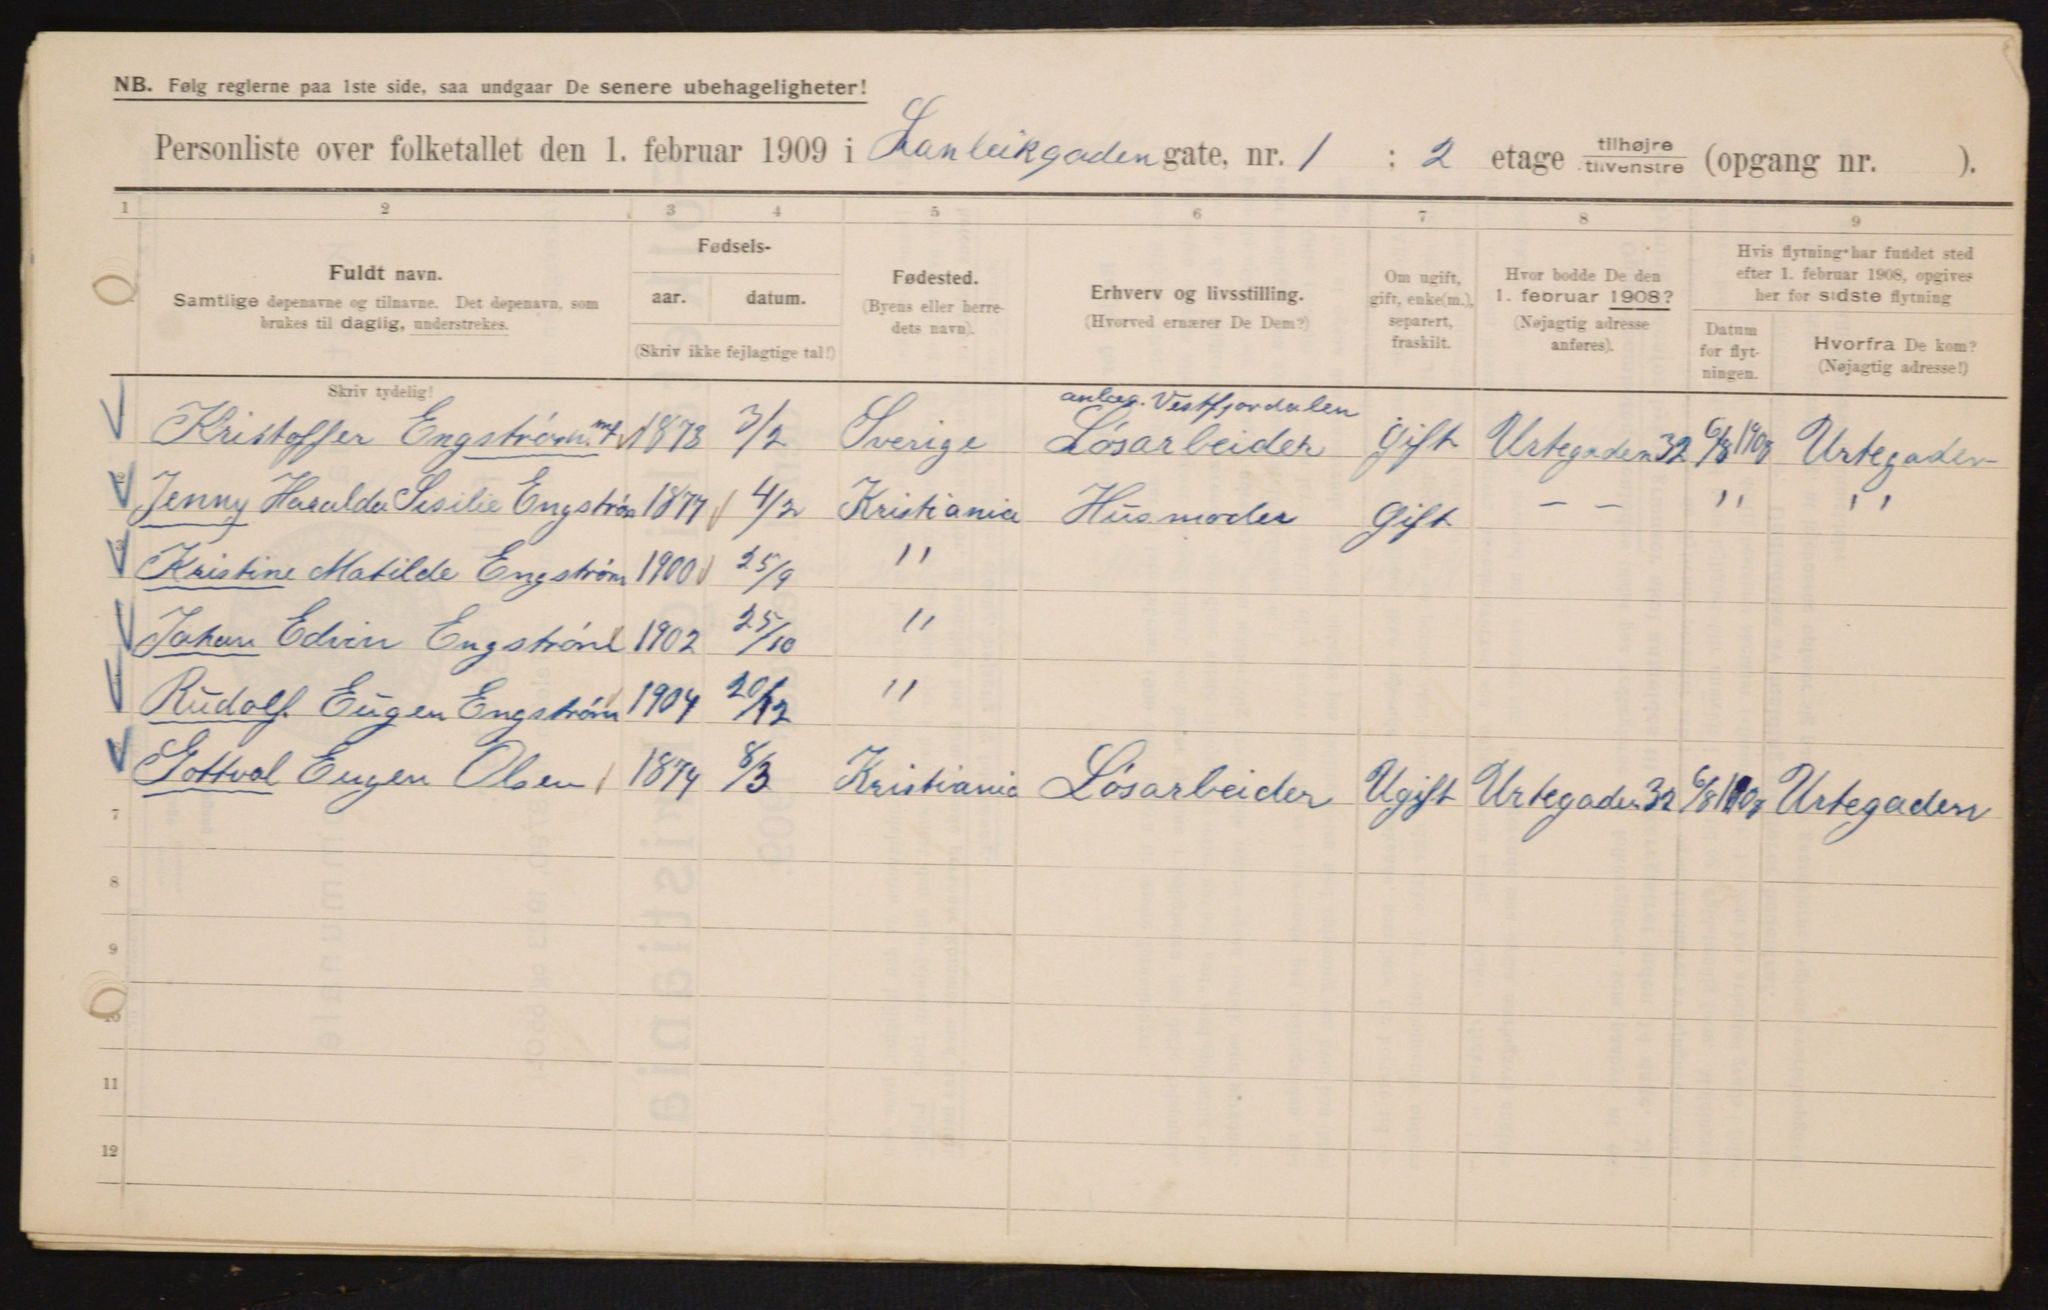 NB. Følg reglerne paa 1ste side, saa undgaar De senere ubehageligheter!
Personliste over folketallet den 1. februar 1909 i Lanleikgaden gate, nr. 1 ; 2 etage tilhøjre tilvenstre (opgang nr. ).
1 2 3 4 5 6 7 8 9
Fuldt navn.
Samtlige døpenavne og tilnavne. Det døpenavn, som
brukes til daglig, understrekes.
Skriv tydelig!
Fødsels-
aar. datum.
(Skriv ikke fejlagtige tal!)
Fødested.
(Byens eller herre-
dets navn).
Erhverv og livsstilling.
(Hvorved ernærer De Dem?)
Om ugift,
gift, enke(m.),
separert,
fraskilt.
Hvor bodde De den
1. februar 1908?
(Nøjagtig adresse
anføres).
Hvis flytning har fundet sted
efter 1. februar 1908, opgives
her for sidste flytning
Datum
for flyt-
ningen.
Hvorfra De kom?
(Nøjagtig adresse!)
anlæg. Vestfjordalen
Kristoffer Engström mt 1873 3/2 Sverige Lösarbeider Gift Urtegaden 32 6/8 1908 Urtegaden
Jenny Haralda Sisilie Engström 1877 4/2 Kristiania Husmoder Gift — — " "
Kristine Matilde Engström 1900 25/9 "
Johan Edvin Engström 1902 25/10 "
Rudolf Eugen Engström 1904 20/12 "
Gottval Eugen Olsen 1874 8/3 Kristiania Lösarbeider Ugift Urtegaden 32 6/8 1908 Urtegaden
7
8
9
10
11
12